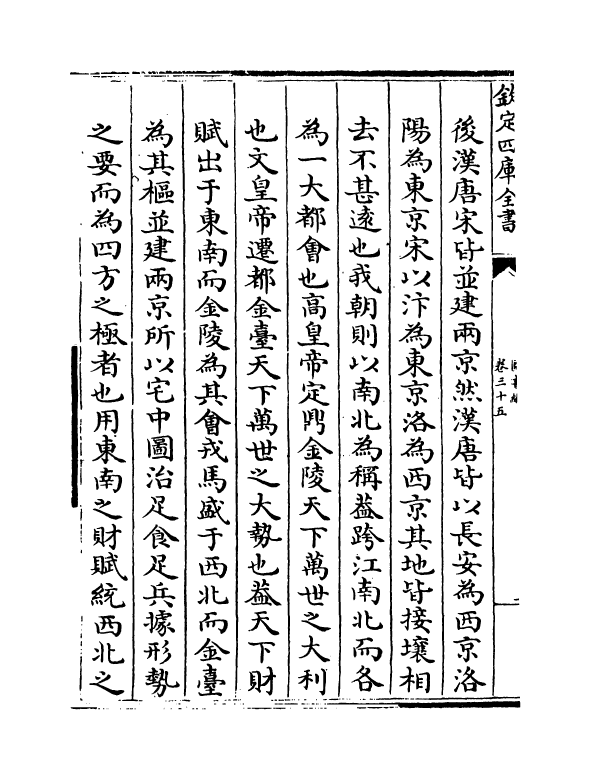 欽定四庫全書
卷三十五
後漢唐宋皆並建兩京然漢唐皆以長安為西京洛
陽為東京宋以汴為東京洛為西京其地皆接壤相
去不甚逺也我朝則以南北為稱葢跨江南北而各
為一大都會也髙皇帝定鼎金陵天下萬世之大利
也文皇帝遷都金臺天下萬世之大勢也葢天下財
賦出于東南而金陵為其會戎馬盛于西北而金臺
為其樞並建兩京所以宅中圖治足食足兵據形勢
之要而為四方之極者也用東南之財賦統西北之